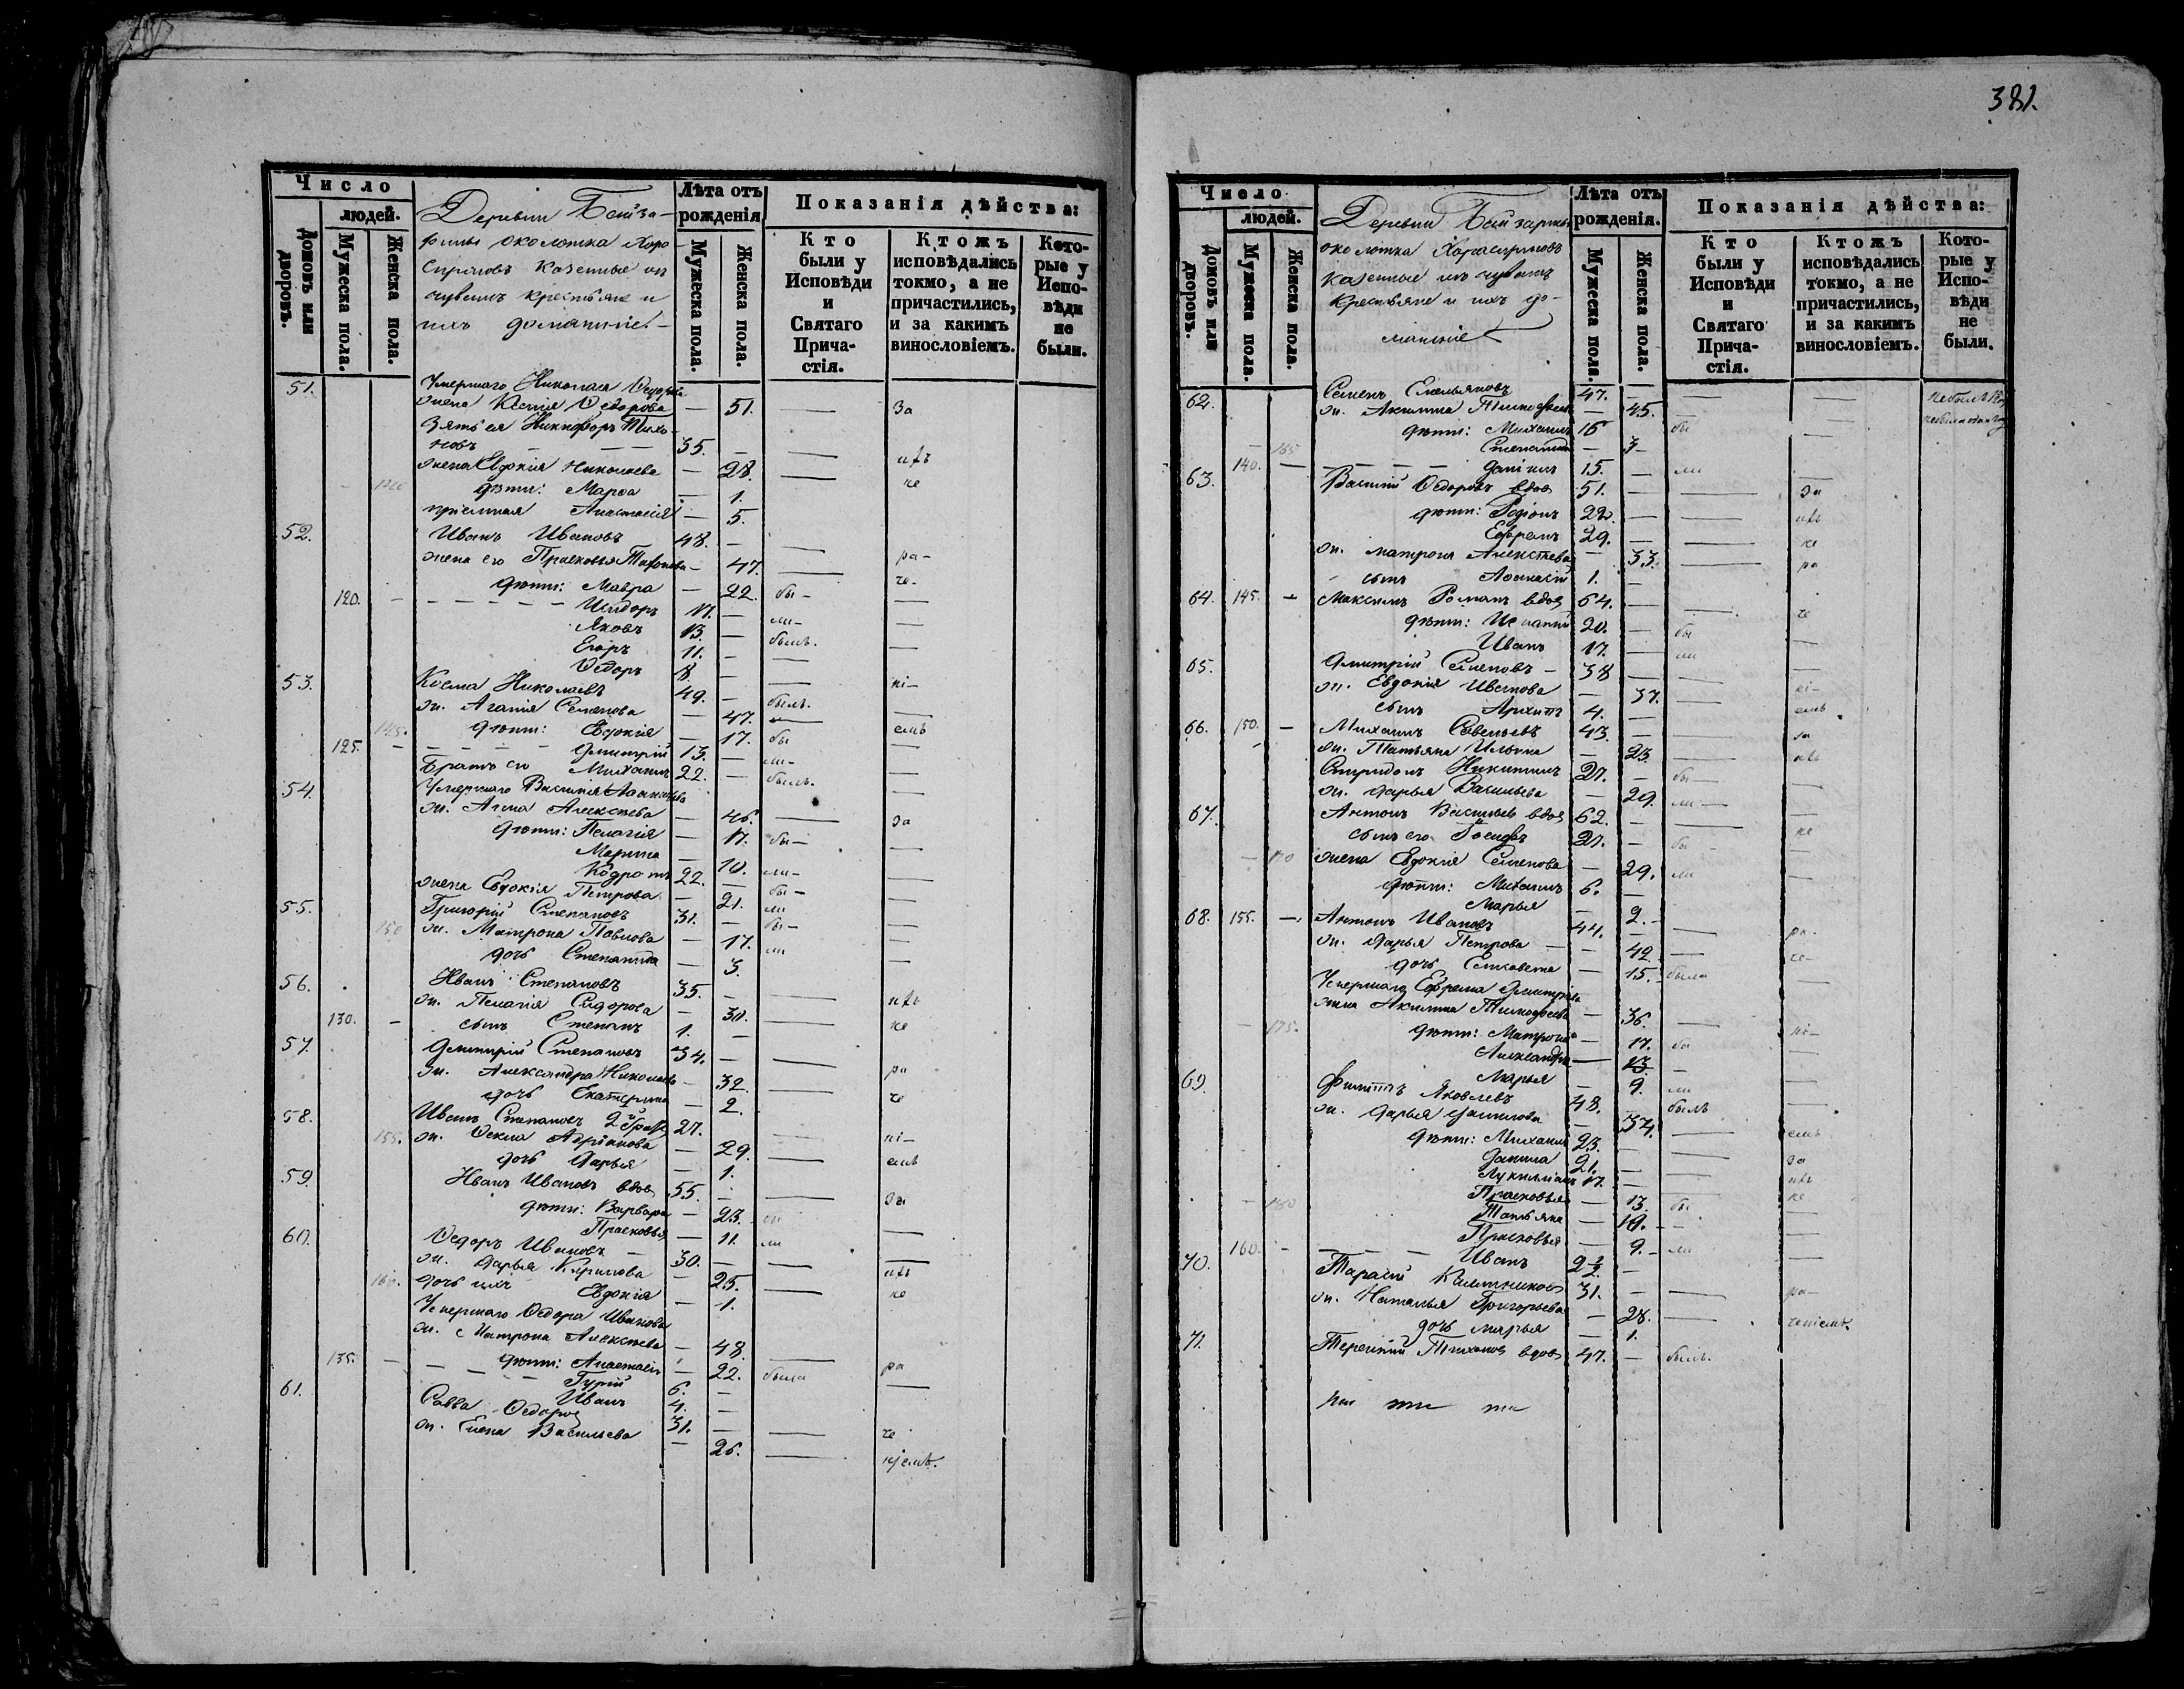 Число
людей.
Домовъ или дворовъ.
Мужеска пола.
Женска пола.
Деревни Байза-
рины околотка Хора
Сирмовъ казенные из
чувашъ крестьяне и
ихъ домашніе. –
Лѣта отъ рожденія.
Мужеска пола.
Женска пола.
Показанія дѣйства:
Кто были у Исповѣди и Святаго Прича-стія.
Ктожъ исповѣдались токмо, а не причастились, и за какимъ винословіемъ.
Кото-рые у Испо-вѣди не были.
51. Умершаго Николая Ѳедорова
жена Ксенія Ѳедорова — 51. — за
Зять ея Никифоръ Тихо-
новъ 35. — —
жена Евдокія Николаева — 28. — нѣ
дѣти: Марѳа — 1. не
пріемная Анастасія — 5.
52. Иванъ Ивановъ 48. —
жена его Прасковья — 47. — ра-
дѣти: Мавра — 22. бы- че-
120. — Исидоръ 17. —
Яковъ 13. — ли-
Егоръ 11. — былъ.
Ѳедоръ 8. —
53. Косма Николаевъ 49. — ні-
ж. Агапія Семенова — 47. былъ.
145. дѣти: Евдокія — 17. бы емъ
125. — Дмитрій 13. — ли-
Братъ его Михаилъ 22. — былъ.
54. Умершаго Василія
ж. Анна Алексѣева — 46. — за
дѣти: Пелагія — 17. бы-
Марина — 10.
22. — ли-
жена Евдокія Петрова — 21. бы-
55. Григорій Степановъ 31. — ли
150 ж. Матрона Павлова — 17. бы-
дочь Степанида — 3. ли
56. Иванъ Степановъ 35. —
ж. Пелагія Сидорова — 30. — нѣ
130. — сынъ Степанъ 1. — не
57. Дмитрій Степановъ 34. —
ж. Александра Николаева — 32. — ра
дочь Екатерина — 2. — че
58. Иванъ Степановъ 2й 27.
155. ж. Ѳекла Адріанова — 29. ні-
дочь Дарья — 1. емъ
59. Иванъ Ивановъ вдов 55. — за
дѣти: Варвара — 23.
Прасковья — 11. ли
60. Ѳедоръ Ивановъ — 30. —
ж. Дарья Кирилова — 25. — нѣ
160. дочь ихъ Евдокія — 1. — не
Умершаго Ѳедора Иванова
ж. Матрона Алексѣева — 48.
дѣти: Анастасія — 22. была ра
135. — Гурій 6. —
Иванъ 4. —
61. Савва Ѳедоров 31. — че
ж. Елена Васильева — 26. — ніемъ.
381.
Число
людей.
Домовъ или дворовъ.
Мужеска пола.
Женска пола.
Деревни Байзарины
околотка Хорасирмовъ
казенные изъ чувашъ
Крестьяне и ихъ до-
машніе
Лѣта отъ рожденія.
Мужеска пола.
Женска пола.
Показанія дѣйства:
Кто были у Исповѣди и Святаго Прича-стія.
Ктожъ исповѣдались токмо, а не причастились, и за какимъ винословіемъ.
Кото-рые у Испо-вѣди не были.
62. Семенъ Емельяновъ 47. —
ж. Акилина — 45.
дѣти: Михаилъ 16 — бы
165 Степанида — 3
140. — Даніилъ 15. — ли
63. Василій Ѳедоровъ вдов 51. — за
дѣти: Родіонъ 22. — нѣ
Ефремъ 29. — не
ж. Матрона Алексѣева — 33. — ра
сынъ Аѳанасій 1. —
64. 145. — Максимъ Роман вдов 64. — че
дѣти: Игнатій 20. — бы
Иванъ 17. — ли
65. Дмитрій Семеновъ — 38
ж. Евдокія Иванова — 37. ні-
сынъ Архипъ 4. — емъ
66. 150. — Михаилъ Савельевъ 43. — за
ж. Татьяна Ильина — 23. нѣ
Спиридонъ Никитинъ 27. — бы-
ж. Дарья Васильева — 29. ли-
67. Антонъ Васильев вдов 62. — не
сынъ его 27. — бы-
170 жена Евдокія Семенова — 29. ли
дѣти: Михаилъ 6. —
Марья — 2. —
68. 155. — Антонъ Ивановъ 44. — ра-
ж. Дарья Петрова — 42. — че-
дочь Елисавета — 15. была
Умершаго Ефрема Дмитріева
жена Акилина Тимофеева — 36. ні-
175. дѣти: Матрона — 17. бы
Александра — 13. —
Марья — 9. ли
69. Филиппъ Яковлевъ 48. — былъ
ж. Дарья Данилова — 34. — емъ
дѣти: Михаилъ 23. — за
Данила 21. — нѣ
17. — не
180 Прасковья — 13. бы
Татьяна — 10. —
Прасковья — 9. — ли
160. — Иванъ 2½ —
70. Тарасій 31. — ра-
ж. Наталья Григорьева — 28. — ченіемъ.
дочь Марья — 1.
71. Терентій Тихонов вдов 47. — былъ.